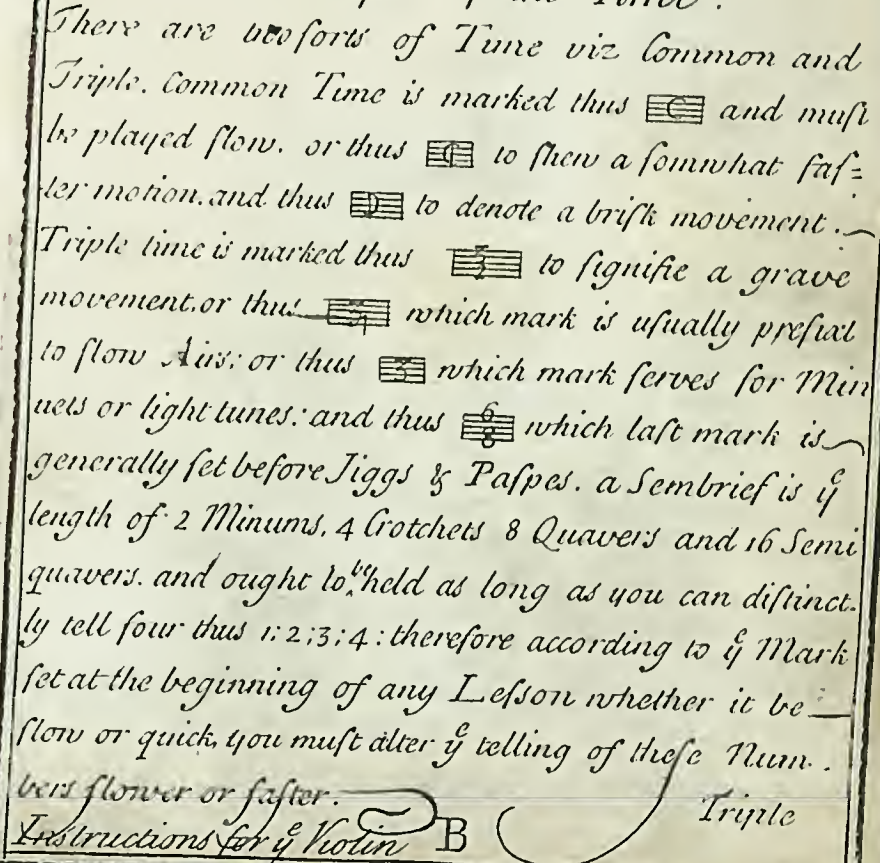 There are two sorts of Time viz Common and
Triple. Common Time is marked thus C and muſt
be played ſlow. or thus ₵ to ſhew a ſomwhat faſ=
ter motion. and thus Ɔ to denote a briſk movement.
Triple time is marked thus 3/2 to ſignifie a grave
movement. or thus 3/4 which mark is uſually prefixt
to ſlow Airs: or thus 3 which mark ſerves for Min
uets or light tunes: and thus 6/8 which laſt mark is
generally ſet before Jiggs & Paſpes. a Sembrief is yᵉ
length of 2 Minums, 4 Crotchets 8 Quavers and 16 Semi
quavers. and ought to be held as long as you can diſtinct-
ly tell four thus 1: 2; 3; 4: therefore according to yᵉ Mark
ſet at the beginning of any Leſson whether it be
ſlow or quick, you muſt alter yᵉ telling of theſe Num-
bers ſlower or faſter.
Triple
Instructions for yᵉ Violin B